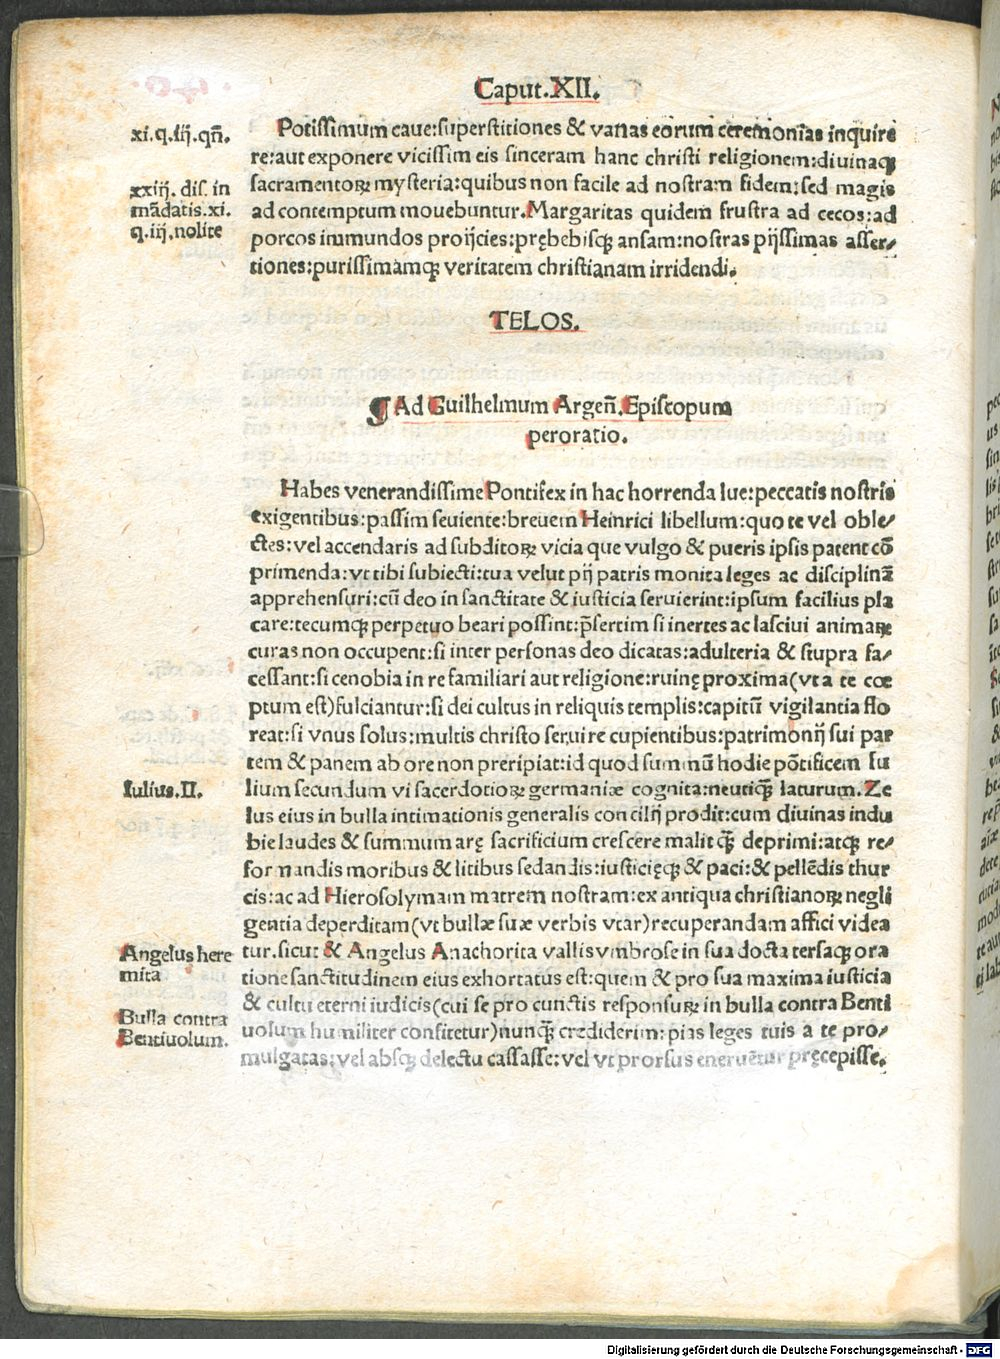 Caput.XII.
xi.q.iij.qñ.
Potissimum caue:superstitiones & vanas eorum ceremonias inquire
re:aut exponere vicissim eis sinceram hanc christi religionem:diuinaqȝ
xxiij. dis. in
sacramentoꝝ mysteria:quibus non facile ad nostram fidem:sed magis
mãdatis.xi.
ad contemptum mouebuntur.Margaritas quidem frustra ad cecos:ad
q.iij.nolite
porcos immundos proijcies:prębebisqȝ ansam:nostras pijssimas asser/
tiones:purissimamqȝ veritatem christianam irridendi.
TELOS.
¶Ad Guilhelmum Argeñ.Episcopum
peroratio.
Habes venerandissime Pontifex in hac horrenda lue:peccatis nostris
exigentibus:passim seuiente:breuem Heinrici libellum:quo te vel oble/
ctes:vel accendaris ad subditoꝝ vicia que vulgo & pueris ipsis patent cõ
primenda:vt tibi subiecti:tua velut pij patris monita leges ac disciplinã
apprehensuri:cũ deo in sanctitate & iusticia seruierint:ipsum facilius pla
care:tecumqȝ perpetuo beari possint:p̃sertim si inertes ac lasciui animaꝝ
curas non occupent:si inter personas deo dicatas:adulteria & stupra fa/
cessant:si cenobia in re familiari aut religione:ruinę proxima(vt a te cœ
ptum est)fulciantur:si dei cultus in reliquis templis:capitũ vigilantia flo
reat:si vnus solus:multis christo seruire cupientibus:patrimonij sui par
tem & panem ab ore non preripiat:id quod summũ hodie põtificem Iu
Iulius.II.
lium secundum vi sacerdotioꝝ germaniæ cognita:neutiqȝ̃ laturum.Ze
lus eius in bulla intimationis generalis concilij prodit:cum diuinas indu
bie laudes & summum arę sacrificium crescere malit qȝ̃ deprimi:atqȝ re/
formandis moribus & litibus sedandis:iusticięqȝ & paci:& pellẽdis thur
cis:ac ad Hierosolymam matrem nostram:ex antiqua christianoꝝ negli
gentia deperditam(vt bullæ suæ verbis vtar)recuperandam affici videa
Angelus here
tur.sicut & Angelus Anachorita vallis vmbrose in sua docta tersaqȝ ora
mita
tione sanctitudinem eius exhortatus est:quem & pro sua maxima iusticia
& cultu eterni iudicis(cui se pro cunctis responsuꝝ in bulla contra Benti
Bulla contra
uolum humiliter confitetur)nunqȝ̃ crediderim:pias leges tuis a te pro/
Bentiuolum.
mulgatas:vel absqȝ delectu cassasse:vel vt prorsus eneruẽtur pręcepisse.
Digitalisierung gefördert durch die Deutsche Forschungsgemeinschaft - DFG